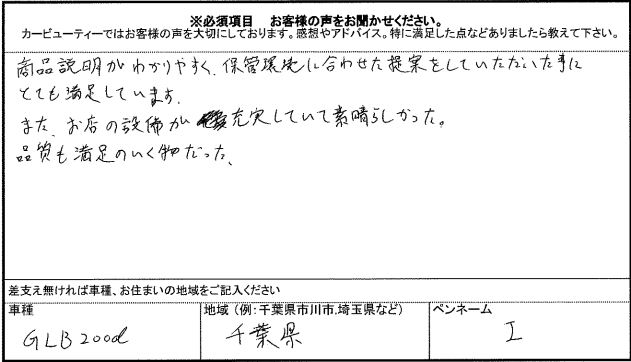 ※必須項目　お客様の声をお聞かせください。
カービューティーではお客様の声を大切にしております。感想やアドバイス。特に満足した点などありましたら教えて下さい。
商品説明がわかりやすく、保管環境に合わせた提案をしていただいた事に
とても満足しています。
また、お店の設備が充実していて素晴らしかった。
品質も満足のいく物だった、
差支え無ければ車種、お住まいの地域をご記入ください
車種　地域（例：千葉県市川市,埼玉県など）　ペンネーム
GLB200d　千葉県　I